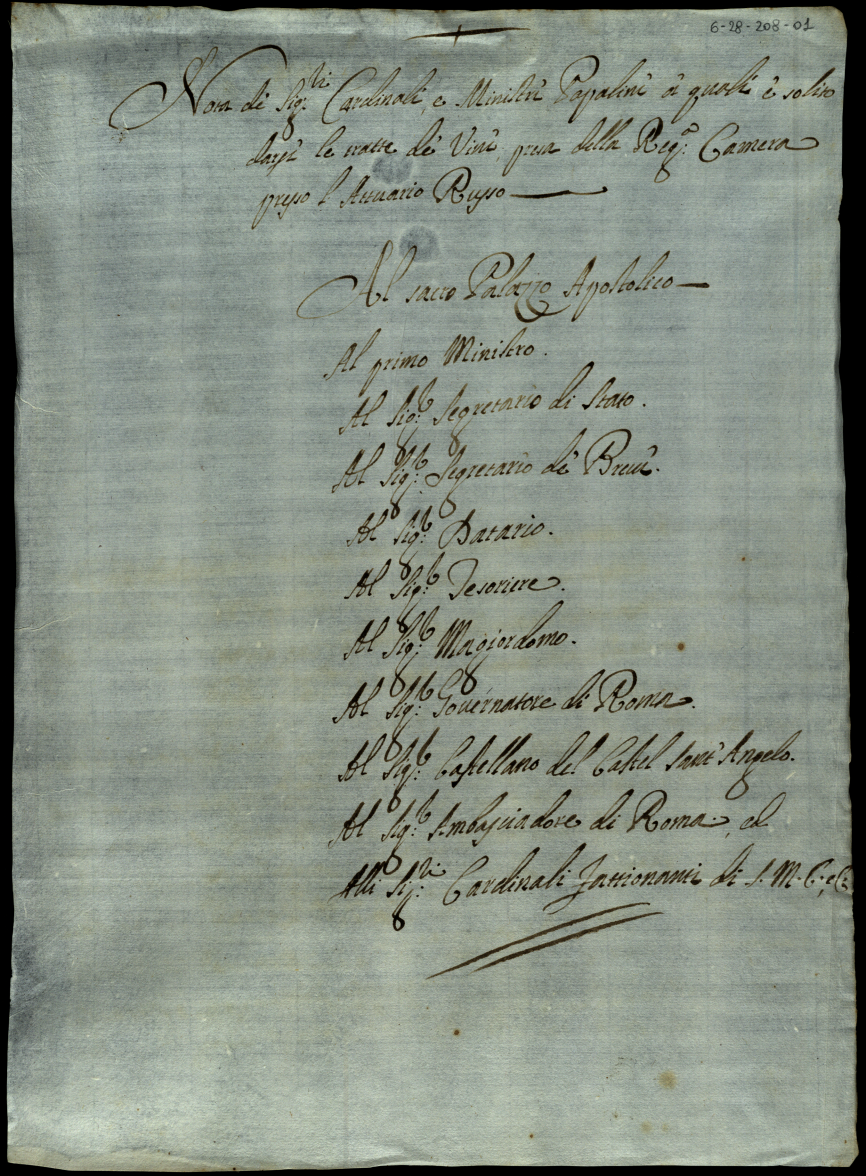 6-28-208-01
Nota di Sig.ri Cardinali, e Ministri Papalini à quali è solito
darsi le tratte de Vini, presa della Reg.a Camera
presso l'Attuario Russo
Al sacro Palazzo Apostolico
Al primo Ministro.
Al Sig.r Segretario di Stato.
Al Sig.r Segretario de Brevi.
Al Sig.r Datario.
Al Sig.r Tesoriere.
Al Sig.r Magiordomo.
Al Sig.r Governatore di Roma.
Al Sig.r Castellano del Castel Sant'Angelo.
Al Sig.r Ambasciadore di Roma, ed
Alli Sig.ri Cardinali Fattionanti di S. M. C.